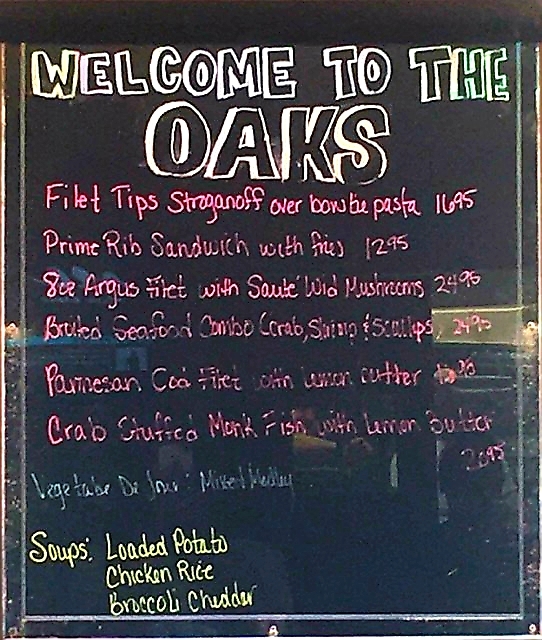 WELCOME TO THE
OAKS
Filet Tips Stroganoff over bowtie pasta 1695
Prime Rib Sandwich with fries 1295
8oz Argus Filet with Sauté Wid Mushrooms 2495
Broiled Seafood Combo (crab, Shrimp & Scallops, 2495
Parmesan Cod Filet with Lemon butter
Crab Stuffed Monk Fish with Lemon Butter
2095
Vegetable De Jour: Mixed Medley
Soups: Loaded Potato
Chicken Rice
Broccoli Cheddar